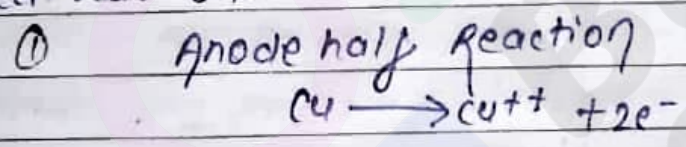 ① Anode half Reaction
Cu ⟶ Cu++ + 2e-